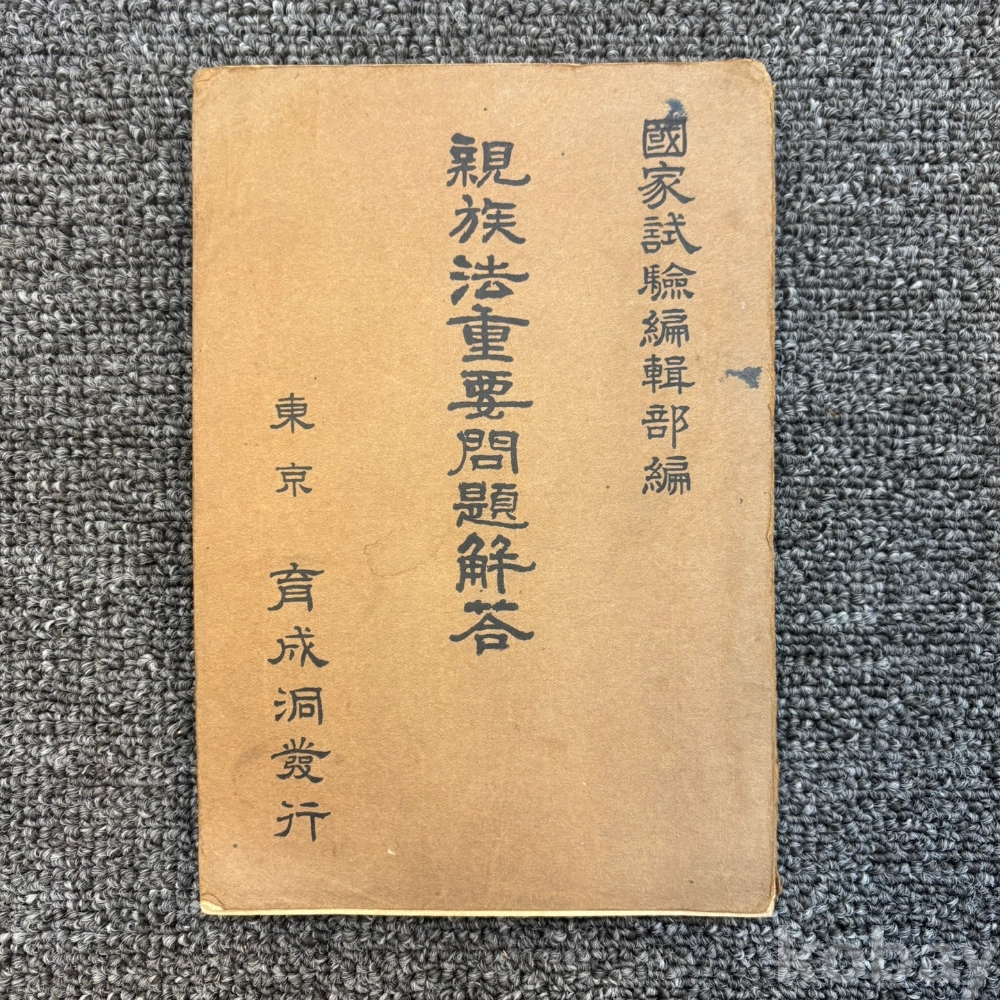 國家試驗編輯部編
親族法重要問題解答
東京 育成洞發行